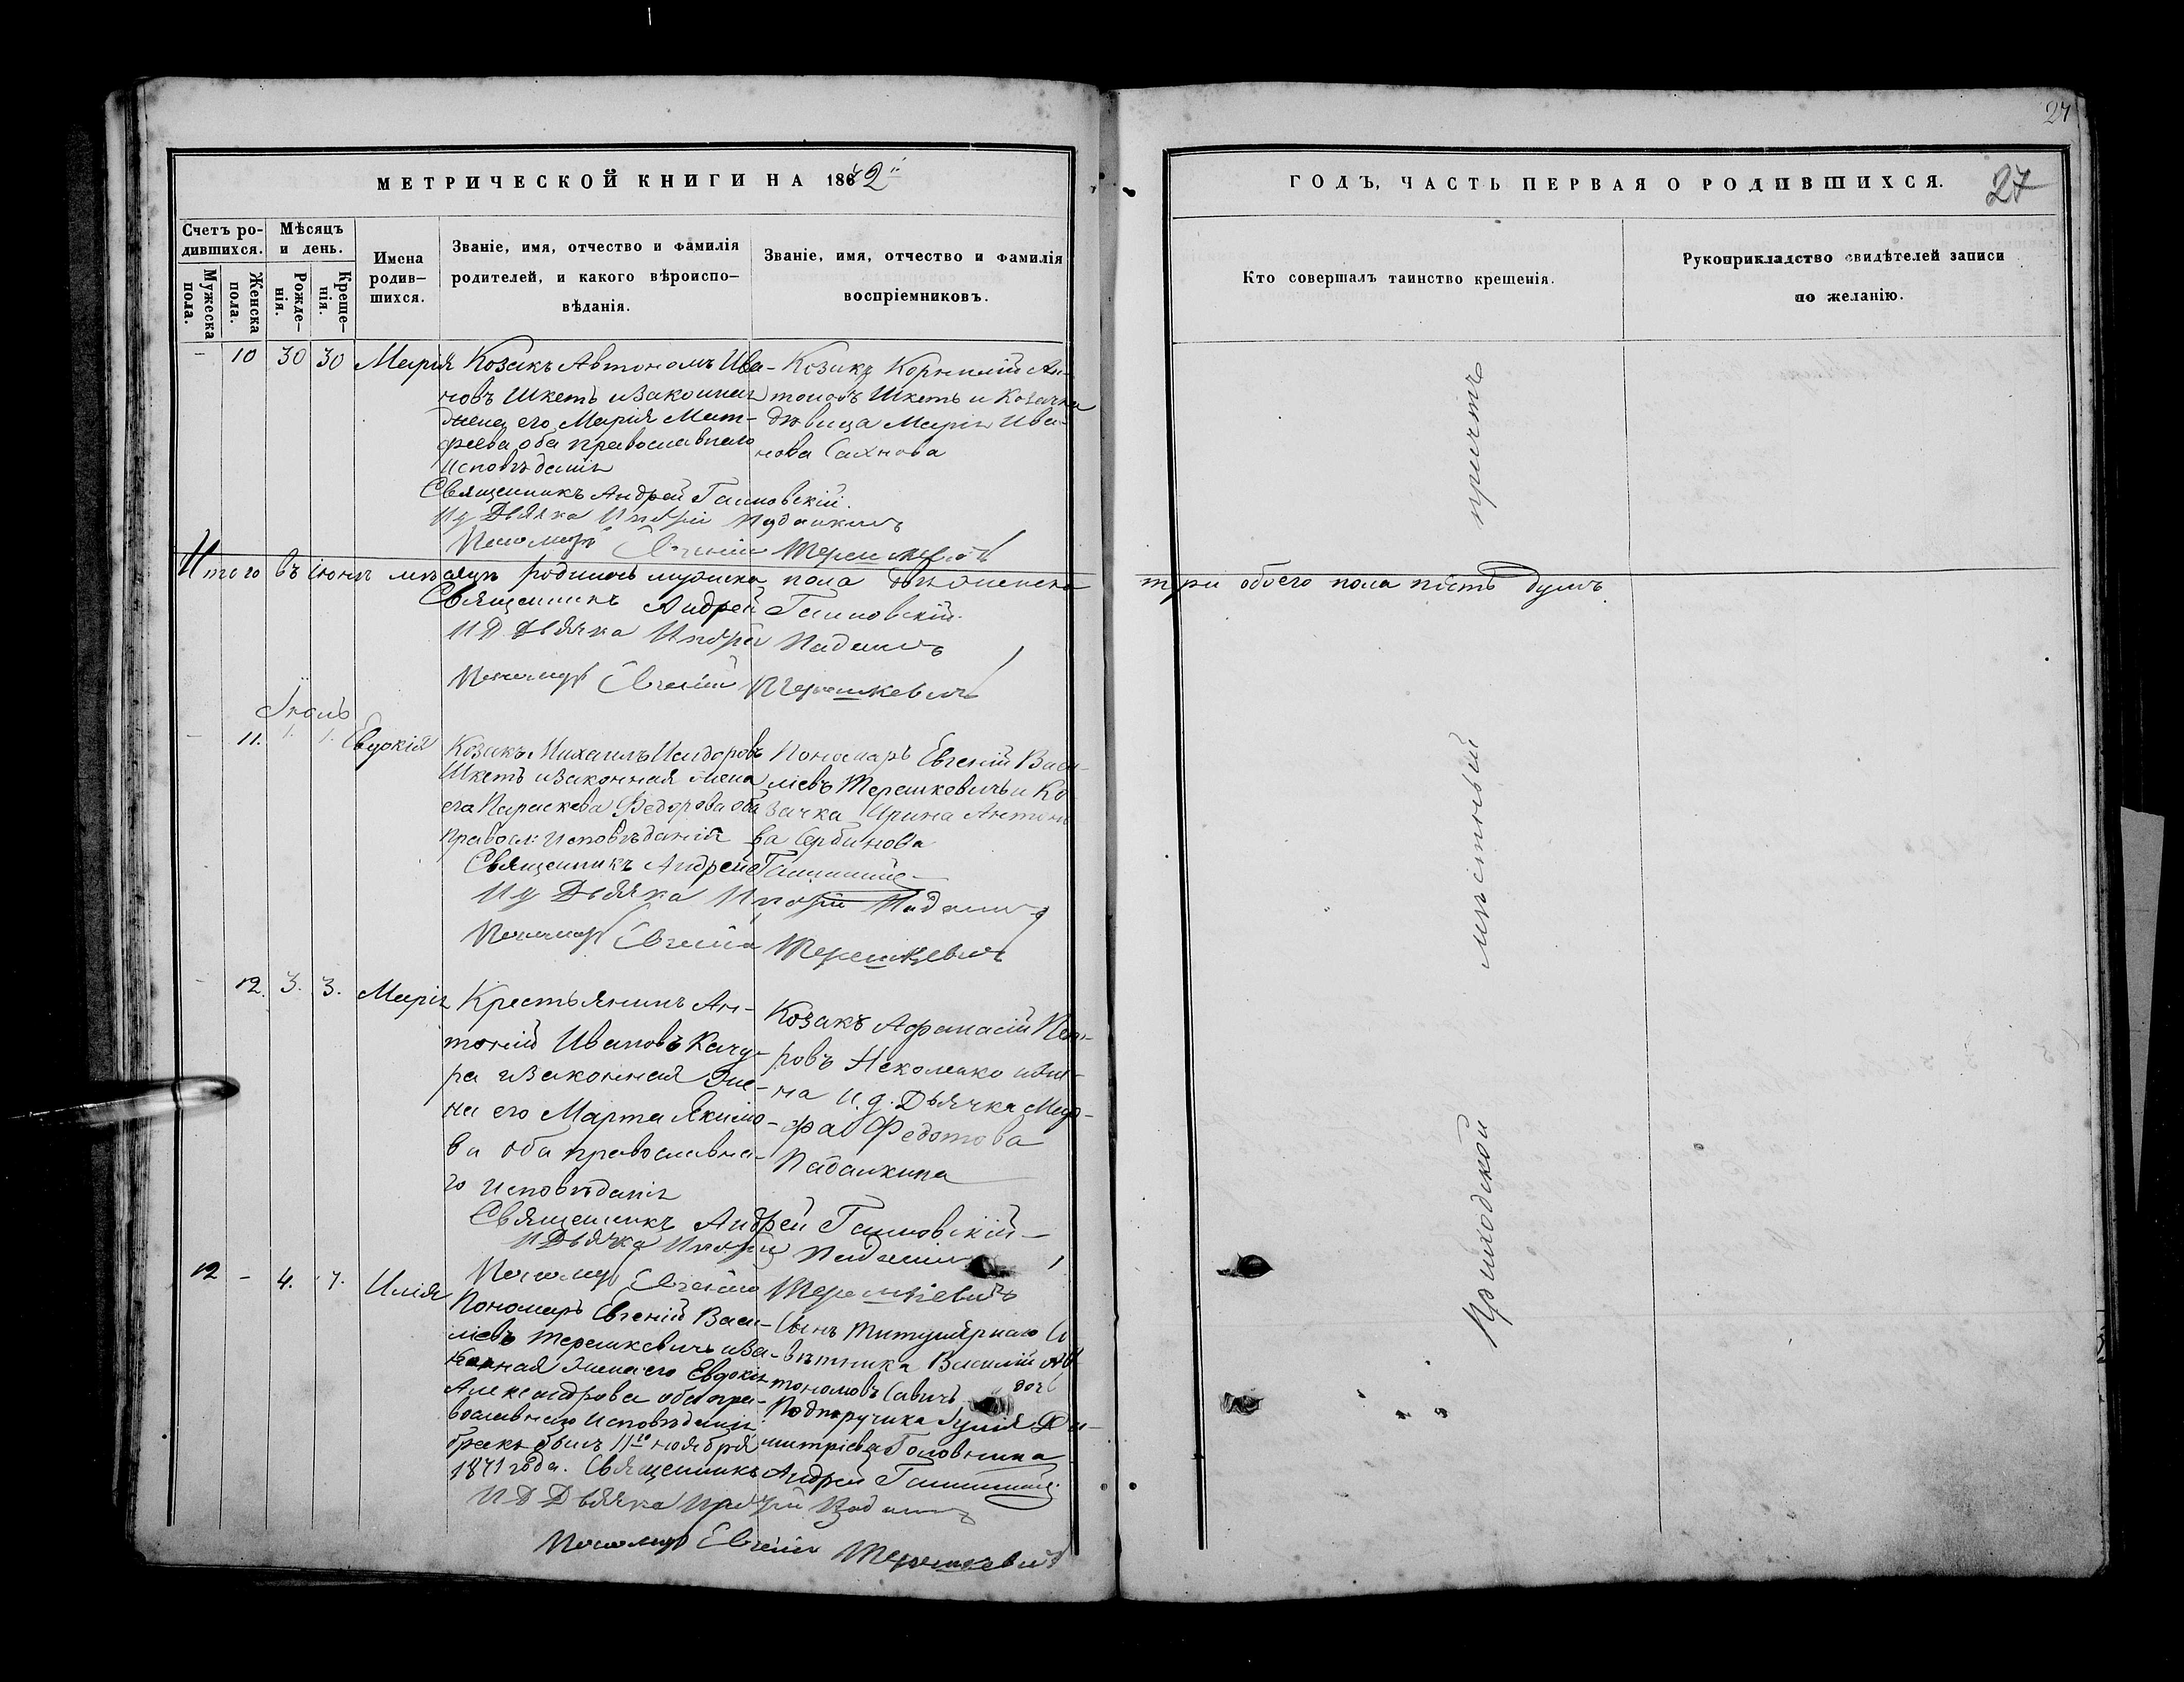 27
МЕТРИЧЕСКОЙ КНИГИ НА 1872
ГОДЪ, ЧАСТЬ ПЕРВАЯ О РОДИВШИХСЯ.
27
Счетъ ро-
дившихся.
Мѣсяцъ
и день.
Мужеска
пола.
Женска
пола.
Рожде-
нія.
Креще-
нія.
Имена
родив-
шихся.
Званіе, имя, отчество и фамилія
родителей, и какого вѣроиспо-
вѣданія.
Званіе, имя, отчество и фамилія
воспріемниковъ.
Кто совершалъ таинство крещенія.
Рукоприкладство свидѣтелей записи
по желанію.
- 10 30 30 Марія
Козакъ Автономъ Ива-
новъ Шкеть и законная
жена его Марія Мат-
фѣева оба православнаго
исповѣданія
Козакъ Корнилій Ан-
тоновъ Шкеть и Козачка
дѣвица Марія Ива-
нова Сахнова
Священникъ Андрей
Ид Дьячка
Пономарь Евгеній Терешкевичъ
Итого въ Іюнѣ мѣсяцѣ родилось мужеска пола женска
три обоего пола душъ
Священникъ Андрей
ИД Дьячка
Пономарь Евгеній Терешкевичъ
Іюль
- 11. 1. 1. Евдокія
Козакъ Михаилъ Исидоровъ
Шкеть и законная жена
его Параскева Федорова оба
правосл: исповѣданія
Пономарь Евгеній Васи-
ліевъ Терешковичъ и Ко
зачка Ирина Антоно
ва Сербинова
Священникъ Андрей
Ид Дьячка
Пономарь Евгеній Терешкевичъ
- 12. 3. 3. Марія
Крестьянинъ Ан-
тоній Ивановъ Качу-
ра и законная же-
на его Марта Якимо-
ва оба православна-
го исповѣданія
Козакъ Афанасій Пет-
ровъ и
на и.д. Дьячка
Федотова
Падалкина
Священникъ Андрей
ИДьячка
Пономарь Евгеній Терешкевичъ
12 - 4. 7. Илія
Пономарь Евгеній Васи-
ліевъ Терешкевичъ и за-
конная жена его Евдокія
Александрова оба пра-
вославнаго исповѣданія
бракъ былъ 11го ноября
1871 года.
Сынъ Титулярнаго Со
вѣтника Василій Ав
тономовъ Савичъ и дочь
Подпоручика Юлія Ди-
митріева Головнина
Священникъ Андрей
ИД Дьячка
Пономарь Евгеній Терешкевичъ
Приходской мѣстный причтъ